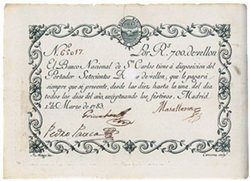 Por R.ˢ 700. de vellon
El Banco Nacional de S.ⁿ Carlos tiene á disposicion del
Portador Setecientos R. de vellon, que le pagará
siempre que se presente, desde las diez hasta la una del dia
todos los dias del año, exceptuando los festivos. Madrid
1º de Marzo de 1783.
Pedro